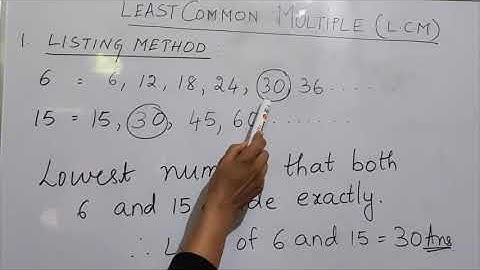 LEAST COMMON MULTIPLE (L.CM)
1. LISTING METHOD:
6 = 6, 12, 18, 24, 30, 36.......
15 = 15, 30, 45, 60.......
Lowest that both
6 and 15 exactly.
∴ of 6 and 15 = 30 Ans